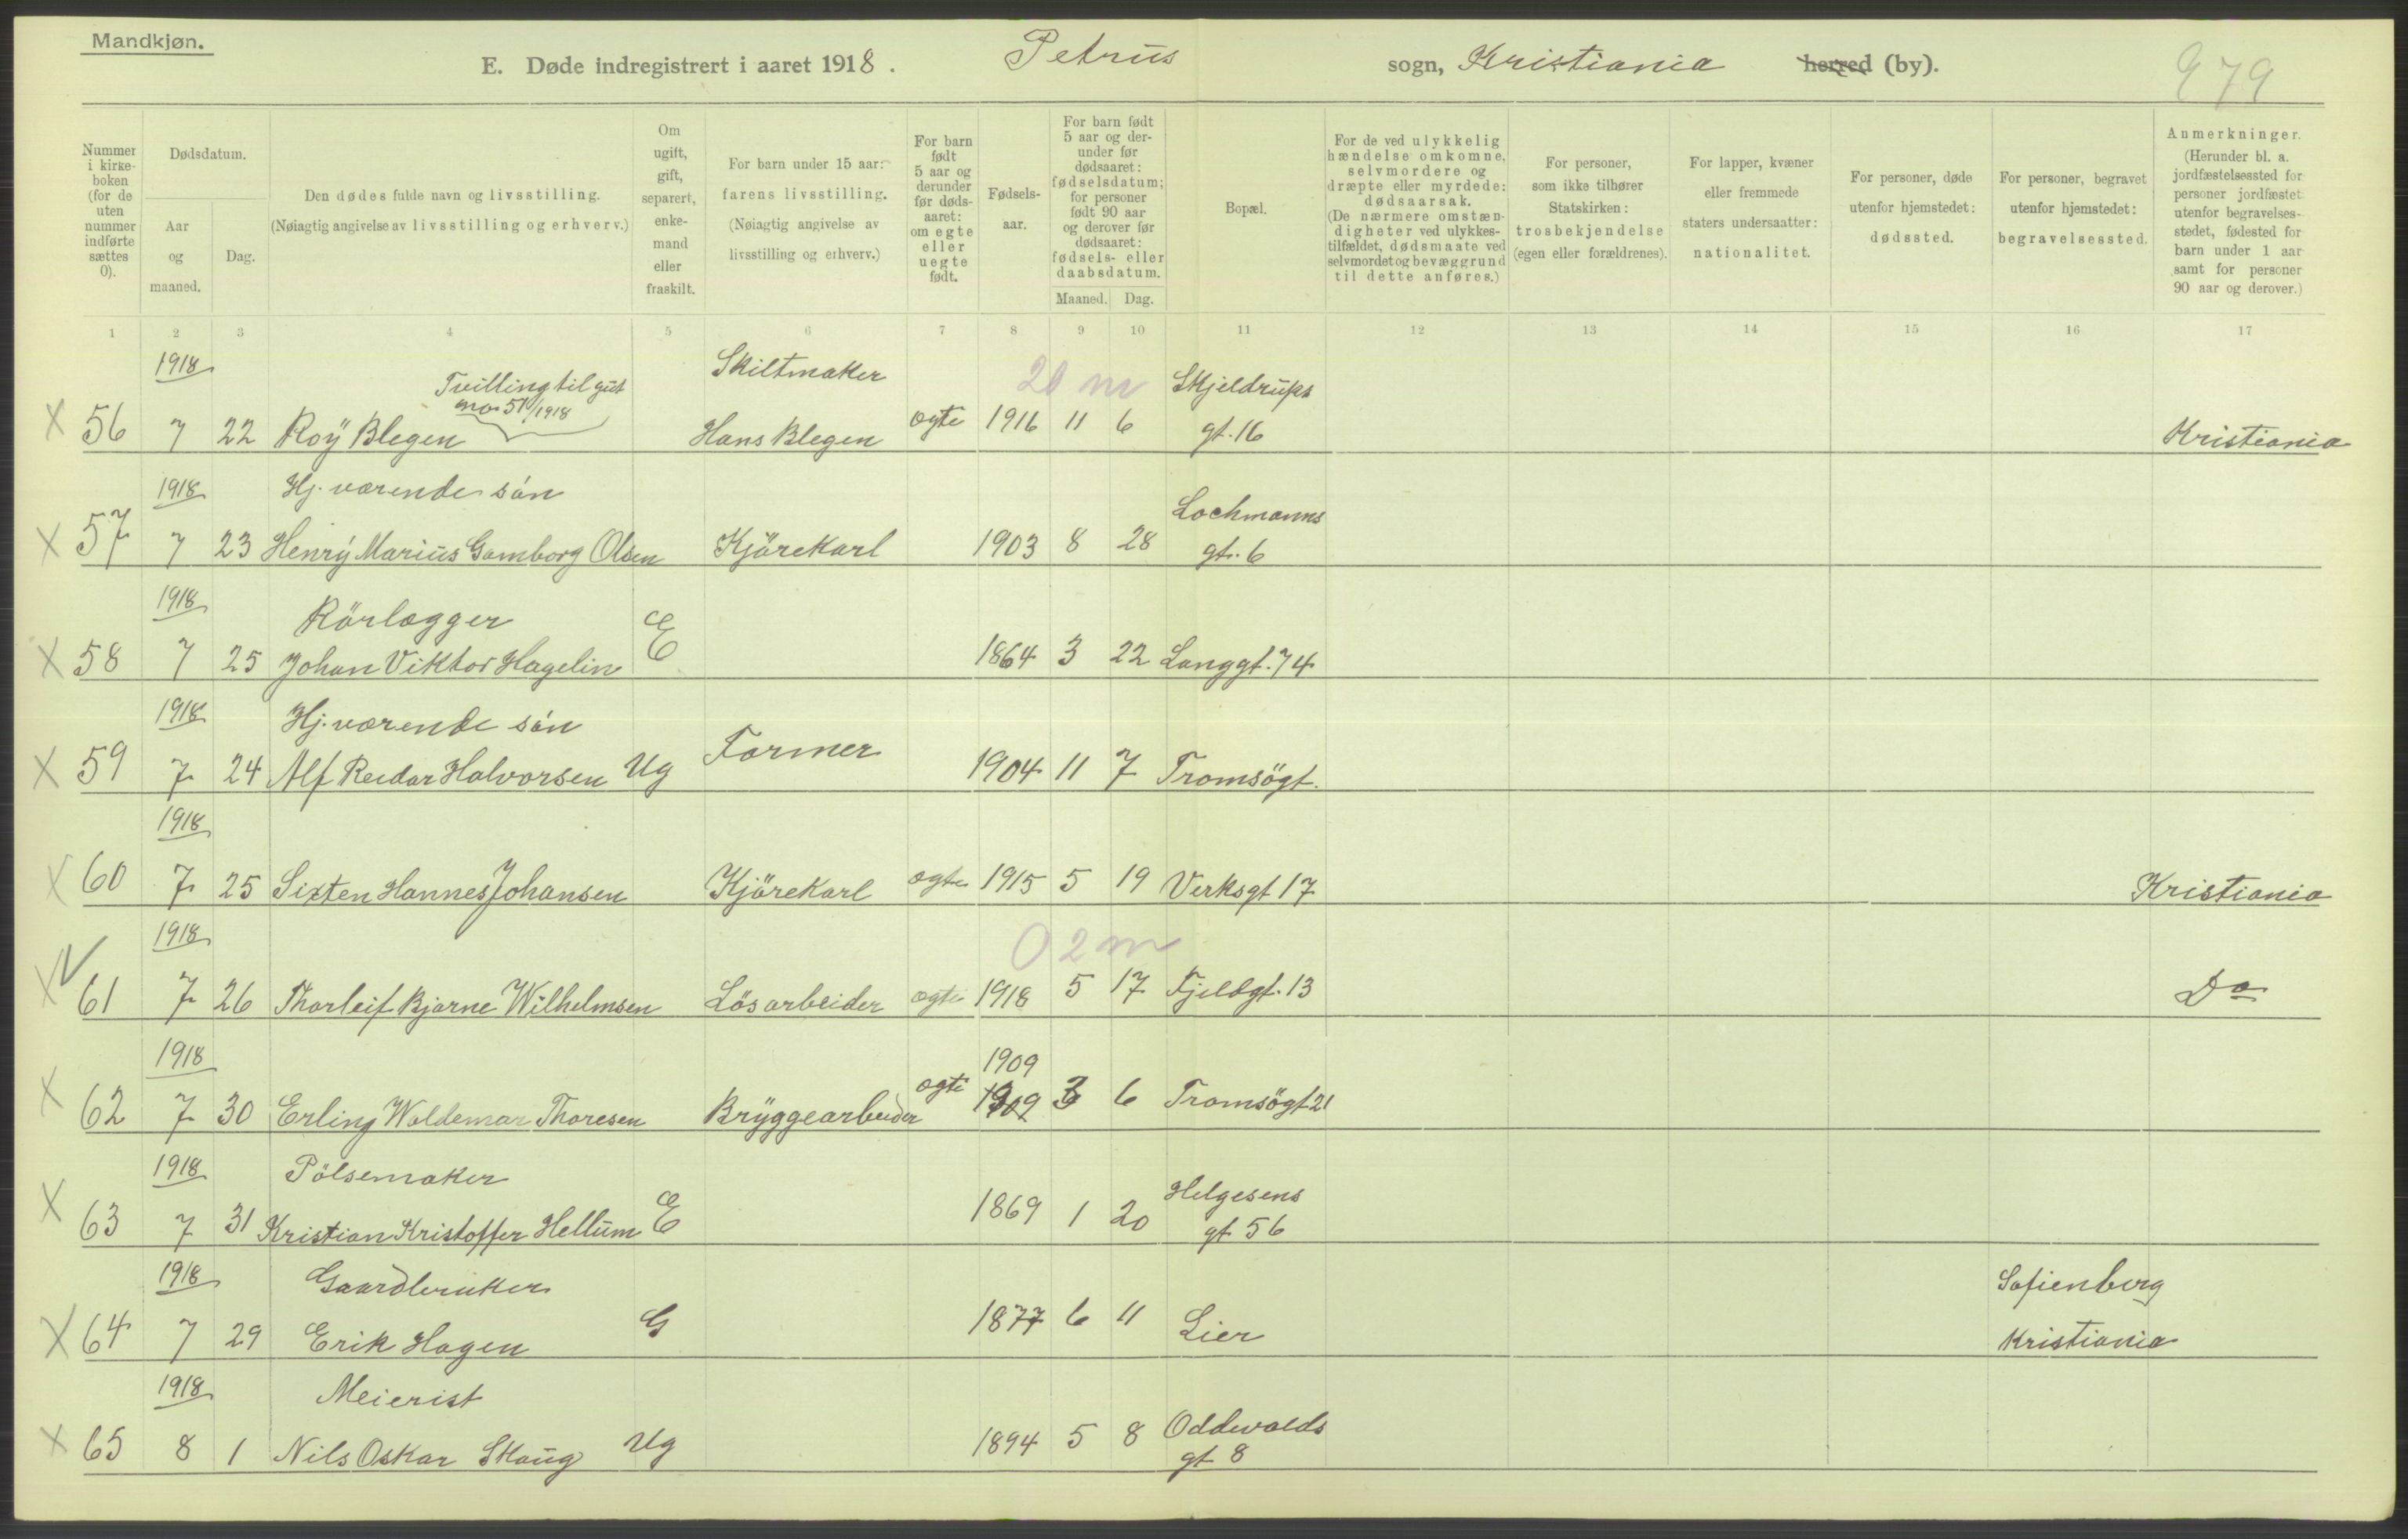 Mandkjøn.
E. Døde indregistrert i aaret 1918. Petrus sogn, Kristiania herred (by). 979
Nummer i kirke-boken (for de uten nummer indførte sættes 0).
Dødsdatum.
Aar og maaned.
Dag.
Den dødes fulde navn og livsstilling.
(Nøiagtig angivelse av livsstilling og erhverv.)
Om ugift, gift, separert, enke-mand eller fraskilt.
For barn under 15 aar: farens livsstilling.
(Nøiagtig angivelse av livsstilling og erhverv.)
For barn født 5 aar og derunder før døds-aaret: om egte eller uegte født.
Fødsels-aar.
For barn født 5 aar og der-under før dødsaaret: fødselsdatum; for personer født 90 aar og derover før dødsaaret: fødsels- eller daabsdatum.
Maaned. Dag.
Bopæl.
For de ved ulykkelig hændelse omkomne, selvmordere og dræpte eller myrdede: dødsaarsak.
(De nærmere omstæn-digheter ved ulykkes-tilfældet, dødsmaate ved selvmordet og bevæggrund til dette anføres.)
For personer, som ikke tilhører Statskirken: trosbekjendelse (egen eller forældrenes).
For lapper, kvæner eller fremmede staters undersaatter: nationalitet.
For personer, døde utenfor hjemstedet: dødssted.
For personer, begravet utenfor hjemstedet: begravelsessted.
Anmerkninger.
(Herunder bl. a. jordfæstelsessted for personer jordfæstet utenfor begravelses-stedet, fødested for barn under 1 aar samt for personer 90 aar og derover.)
1 2 3 4 5 6 7 8 9 10 11 12 13 14 15 16 17
1918 Tvilling til gut Skiltmaker 20 m Skjeldrups
no 51/1918
X 56 7 22 Roÿ Blegen Hans Blegen ægte 1916 11 6 gt. 16 Kristiania
1918 Hj. værende sön Lochmanns
X 57 7 23 Henrÿ Marius Gamborg Olsen Kjörekarl 1903 8 28 gt. 6
1918 Rörlægger
X 58 7 25 Johan Viktor Hagelin E 1864 3 22 Langgt. 74
1918 Hj. værende sön
X 59 7 24 Alf Reidar Halvorsen Ug Former 1904 11 7 Tromsögt.
1918
X 60 7 25 Sixten Hannes Johansen Kjörekarl ægte 1915 5 19 Verksgt 17 Kristiania
1918 0 2 m
X V 61 7 26 Thorleif Bjarne Wilhelmsen Lösarbeider ægte 1918 5 17 Fjeldgt. 13 Do
1918 1909
X 62 7 30 Erling Waldemar Thoresen Brÿggearbeider ægte 1909 3 6 Tromsögt 21
1918 Pölsemaker Helgesens
X 63 7 31 Kristian Kristoffer Hellum E 1869 1 20 gt 56
1918 Gaardbruker Sofienberg
X 64 7 29 Erik Hagen G 1877 6 11 Lier Kristiania
1918 Meierist Oddevalds
X 65 8 1 Nils Oskar Skaug Ug 1894 5 8 gt 8